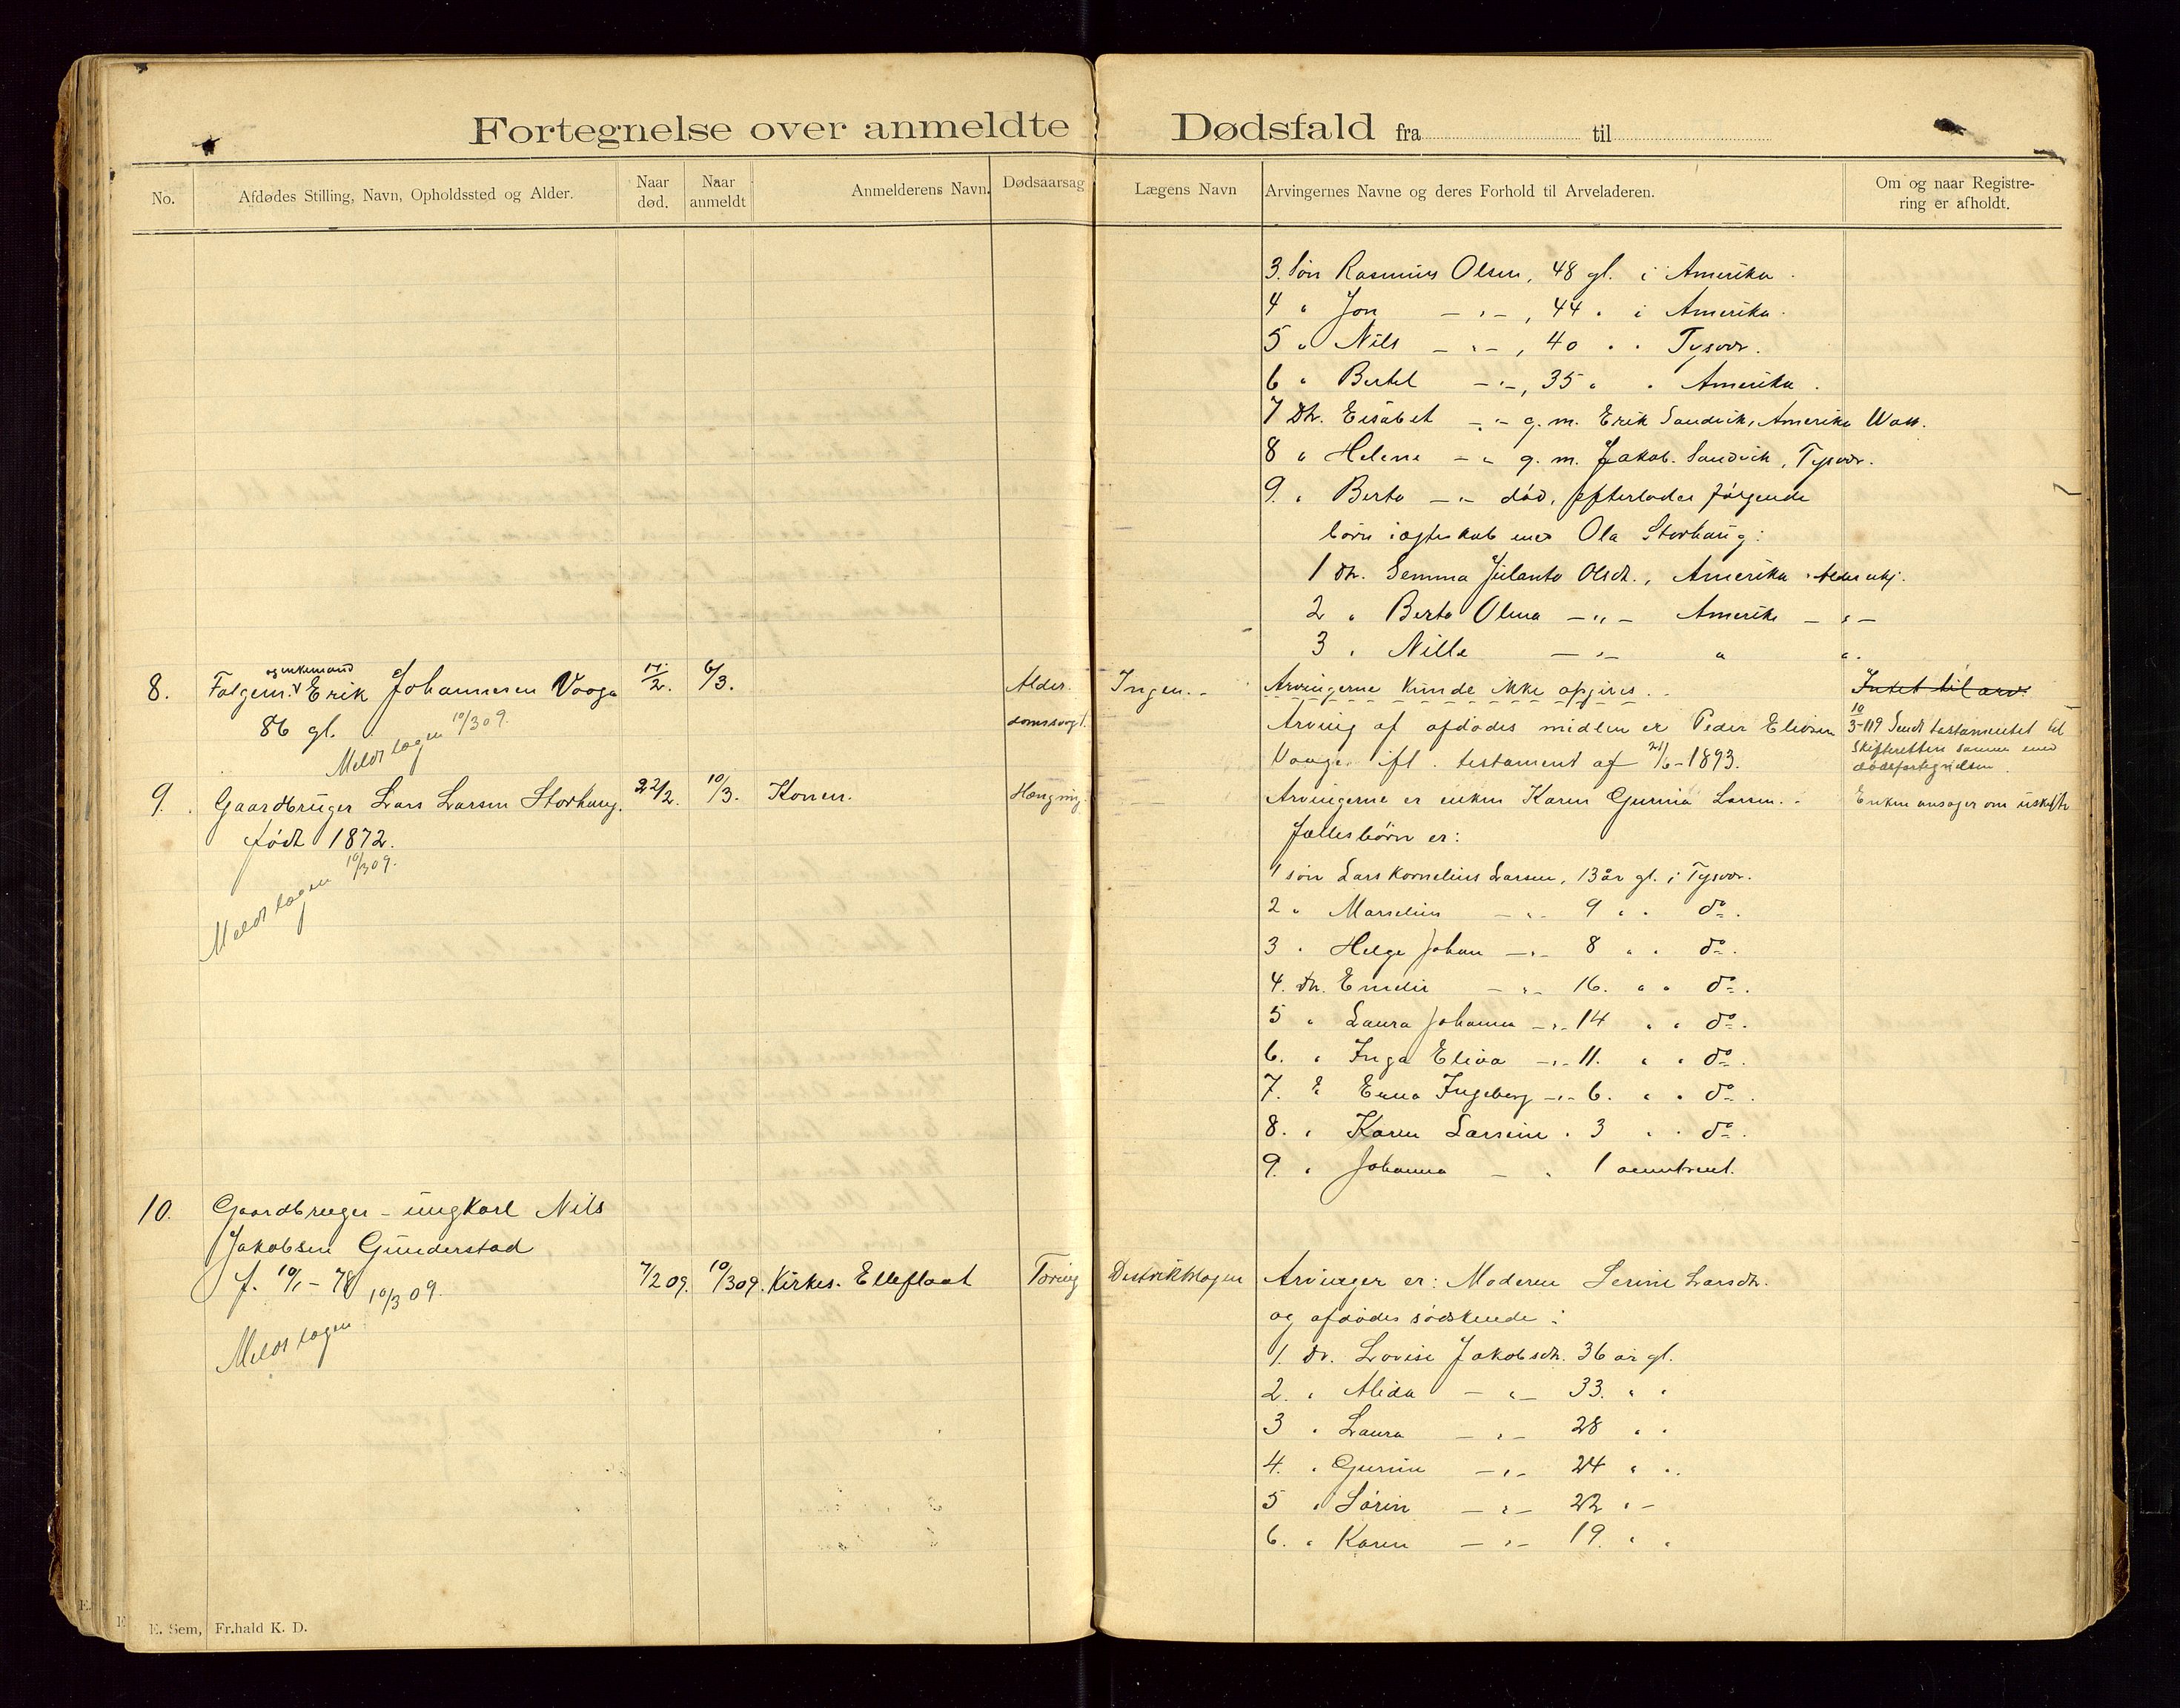 Fortegnelse over anmeldte Dødsfald fra til
No.
Afdødes Stilling, Navn, Opholdssted og Alder.
Naar død.
Naar anmeldt
Anmelderens Navn.
Dødsaarsag
Lægens Navn
Arvingernes Navne og deres Forhold til Arveladeren.
Om og naar Registrering er afholdt.
3. Søn Rasmus Olsen, 48 gl. i Amerika.
4 " Jon - " - , 44 " i Amerika.
5 " Nils - " - , 40 " " Tysvær.
6 " Bertel - " - , 35 " " Amerika.
7 Dtr. Elisabet - " - g. m. Erik Sandvik, Amerika
8 " Helene - " - g. m. Jakob Sandvik, Tysvær.
9. " Berta - " - død, efterlader følgende
børn i ægteskab med Ola Storhaug:
1 Dtr. Semma Julanta Olsdt., Amerika. Alder ubj.
2 " Berta Olena - " - Amerika - " -
3 " Nille - " - " "
8. Følgem. og enkemand Erik Johannesen Vaage 17/2. 6/3. Alder- Ingen. Arvingerne kunde ikke opgives. Intet til arv.
86 gl. domssvagt. Arving af afdødes midler er Peder Eliasen 10/3-119 Sendt testamentet til
Meldt lagen 10/3 09. Vaage ifl. testament af 21/6-1893. Skifteretten sammen med
dødsfortegnelsen.
9. Gaardbruger Lars Larsen Storhaug. 22/2. 10/3. Konen. Hængning Arvingerne er enken Karen Gurina Larsen. Enken ansøger om uskifte
født 1872. Fællesbørn er:
Meldt lagen 10/3 09.
1 søn Lars Kornelius Larsen, 13 år gl. i Tysvær.
2 " Marselius - " - 9 " " do.
3 " Helge Johan - " - 8 " " do.
4. Dtr. Emelie - " - 16. " " do.
5 " Laura Johanna - " - 14 " " do.
6. " Inga Elisa - " - 11. " " do.
7. " Enna Ingeborg - " - 6. " " do.
8. " Karen Larsine " 3 " " do.
9. " Johanna - " 1 omtrent.
10. Gaardbruger - ungkarl Nils
Jakobsen Gunderstad
f. 10/1-78 7/2 09. 10/3 09. Kirkes. Elleflaat Tæring Distriktslægen Arvinger er: Moderen Serine Larsdtr.
Meldt lagen 10/3 09. og afdødes sødskende:
1. Dr. Lovise Jakobsdtr. 36 år gl.
2. " Alida - " - 33. " "
3 " Laura - " - 28 " "
4. " Gurine - " - 24 " "
5 " Sørin - " - 22 " -
6. " Karen - " - 19. " "
E. Sem, Fr.hald K. D.